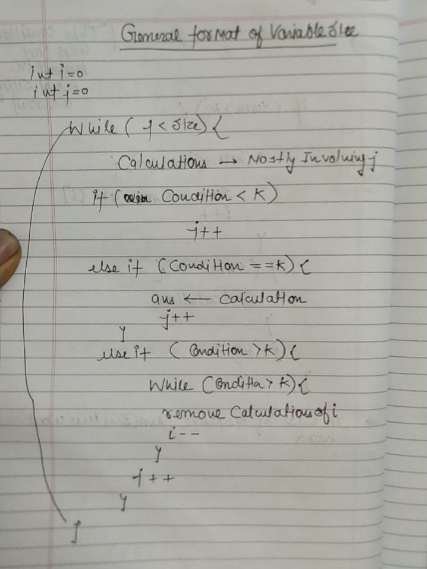 General format of Variable Size
int i=0
int j=0
While ( j < Size) {
Calculations → Mostly Involving j
if ( Condition < K)
j++
else if (Condition ==k) {
ans ← Calculation
j++
}
else if ( Condition >k) {
While (Condition > k) {
remove Calculations of i
i--
}
j++
}
}